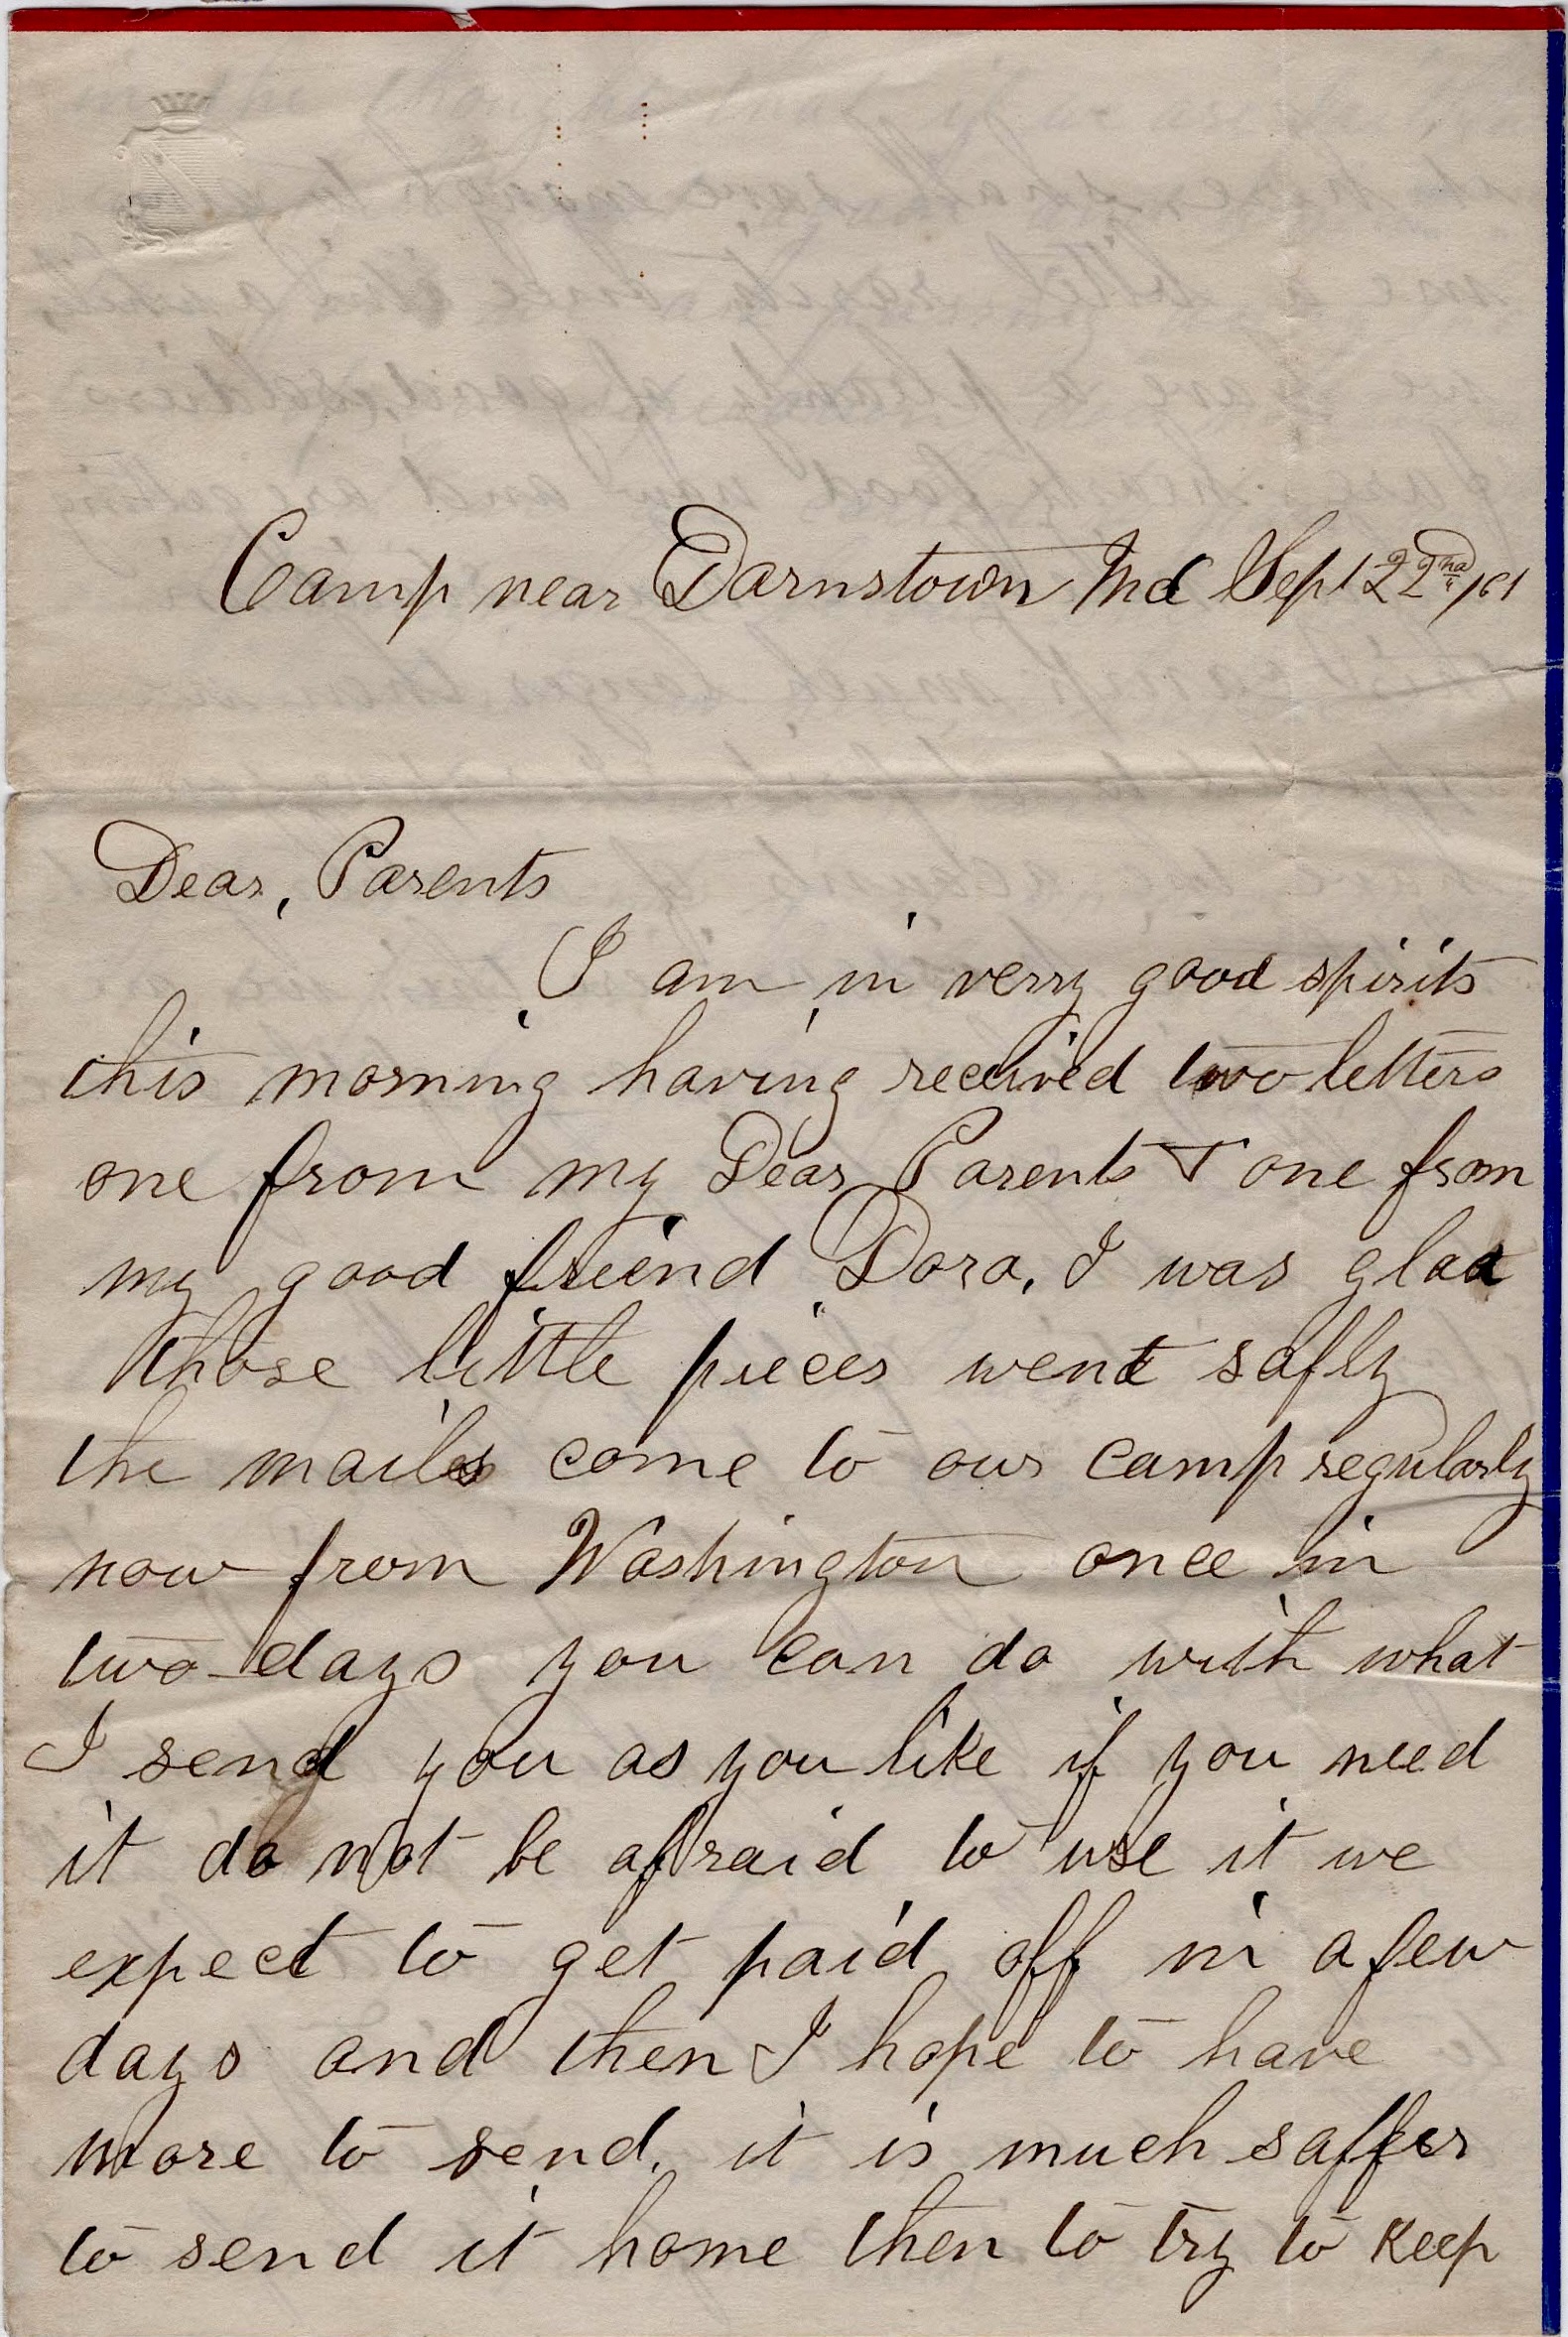 Camp near Darnstown Md Sept 22nd /61
Dear, Parents
I am in verry good spirits
this morning having received two letters
one from my Dear Parents & one from
my good friend Dora, I was glad
those little pieces went safly
the mails come to our camp regularly
now from Washington once in
two days you can do with what
I send you as you like if you need
it do not be afraid to use it we
expect to get paid off in a few
days and then I hope to have
more to send, it is much saffer
to send it home then to try to keep